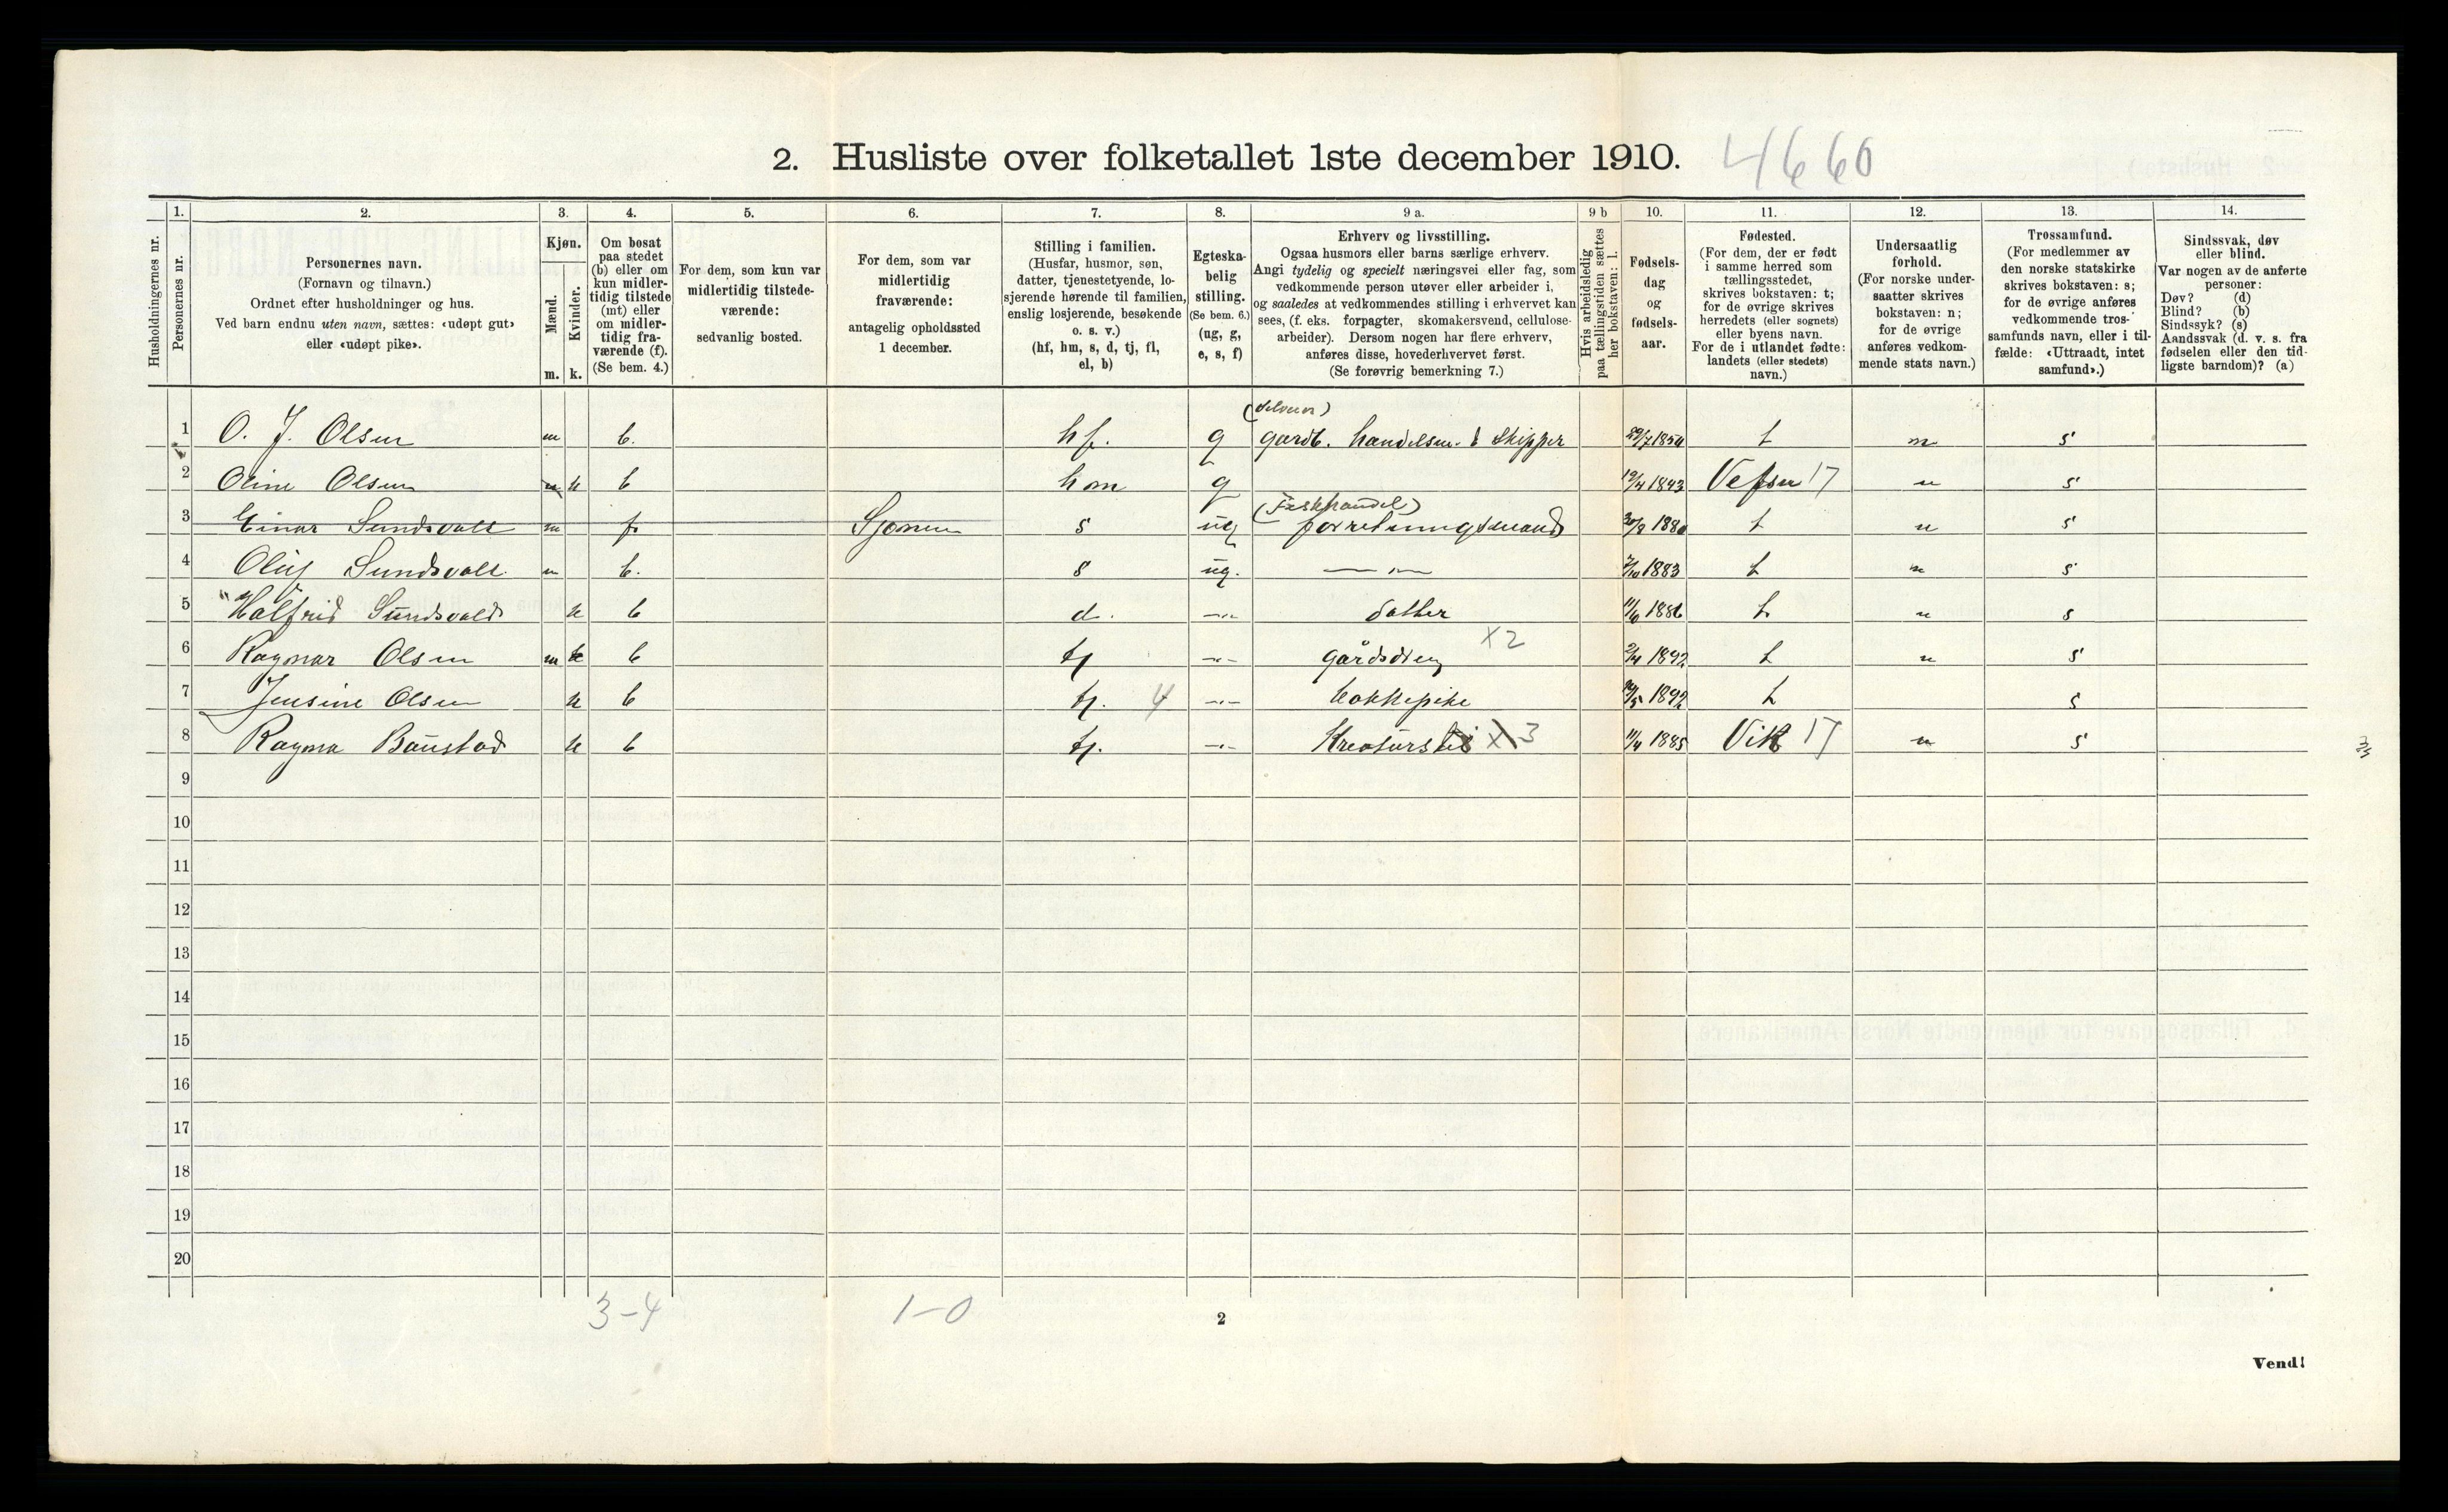 2. Husliste over folketallet 1ste december 1910. 4660
Husholdningernes nr.
1. Personernes nr.
2. Personernes navn.
(Fornavn og tilnavn.)
Ordnet efter husholdninger og hus.
Ved barn endnu uten navn, sættes: «udøpt gut»
eller «udøpt pike».
3. Kjøn.
Mænd. Kvinder.
m. k.
4. Om bosat
paa stedet
(b) eller om
kun midler-
tidig tilstede
(mt) eller
om midler-
tidig fra-
værende (f).
(Se bem. 4.)
5. For dem, som kun var
midlertidig tilstede-
værende:
sedvanlig bosted.
6. For dem, som var
midlertidig
fraværende:
antagelig opholdssted
1 december.
7. Stilling i familien.
(Husfar, husmor, søn,
datter, tjenestetyende, lo-
sjerende hørende til familien,
enslig losjerende, besøkende
o. s. v.)
(hf, hm, s, d, tj, fl,
el, b)
8. Egteska-
belig
stilling.
(Se bem. 6.)
(ug, g,
e, s, f)
9 a. Erhverv og livsstilling.
Ogsaa husmors eller barns særlige erhverv.
Angi tydelig og specielt næringsvei eller fag, som
vedkommende person utøver eller arbeider i,
og saaledes at vedkommendes stilling i erhvervet kan
sees, (f. eks. forpagter, skomakersvend, cellulose-
arbeider). Dersom nogen har flere erhverv,
anføres disse, hovederhvervet først.
(Se forøvrig bemerkning 7.)
9 b Hvis arbeidsledig
paa tællingstiden sættes
her bokstaven: l.
10. Fødsels-
dag
og
fødsels-
aar.
11. Fødested.
(For dem, der er født
i samme herred som
tællingsstedet,
skrives bokstaven: t;
for de øvrige skrives
herredets (eller sognets)
eller byens navn.
For de i utlandet fødte:
landets (eller stedets)
navn.)
12. Undersaatlig
forhold.
(For norske under-
saatter skrives
bokstaven: n;
for de øvrige
anføres vedkom-
mende stats navn.)
13. Trossamfund.
(For medlemmer av
den norske statskirke
skrives bokstaven: s;
for de øvrige anføres
vedkommende tros-
samfunds navn, eller i til-
fælde: «Uttraadt, intet
samfund».)
14. Sindssvak, døv
eller blind.
Var nogen av de anførte
personer:
Døv? (d)
Blind? (b)
Sindssyk? (s)
Aandssvak (d. v. s. fra
fødselen eller den tid-
ligste barndom)? (a)
1 O. J. Olsen m b. hf. g gardb. handelsm. & Skipper 29/7 1854 t n s
2 Oline Olsen k b hm g 19/4 1843 Vefsn 17 n s
(Feskhandel)
3 Einar Sundsvold m f. Sjonen s ug forretningsmand 30/8 1880 t n s
4 Oluf Sundsvold m b. s ug. —„— 7/10 1883 t n s
5 Halfrid Sundsvold k b d. —„— datter 11/6 1886 t n s
6 Ragnar Olsen m b tj —„— gårdsdreng X2 2/4 1892 t n s
7 Jensine Olsen k b tj. 4 —„— kokkepike 1892 t s
8 Ragna Baustad k b tj. —„— Kreaturs X 3 11/4 1885 Vik 17 n s
9
10
11
12
13
14
15
16
17
18
19
20
3-4 1-0
2
Vend!